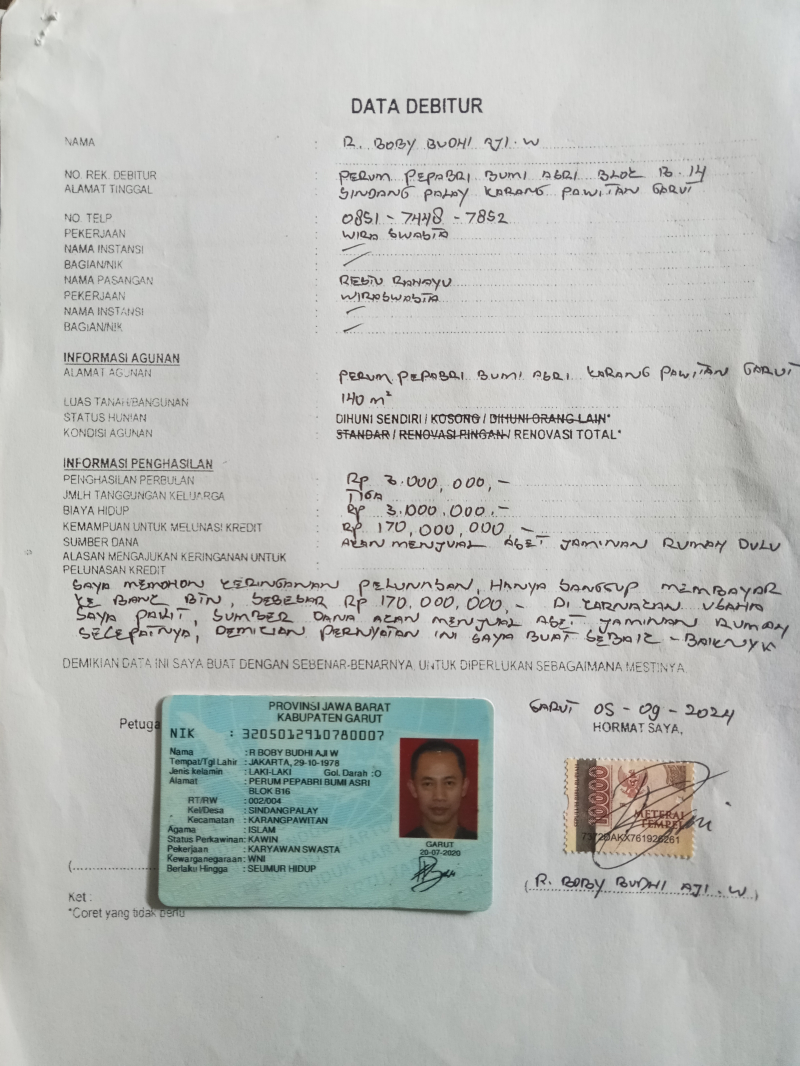 DATA DEBITUR
NAMA : R. BOBY BUDHI AJI.W
NO. REK. DEBITUR : PERUM PEPABRI BUMI ASRI BLOK B.14
ALAMAT TINGGAL : SINDANG PALAY KARANG PAWITAN GARUT
NO. TELP : 0851-7448-7852
PEKERJAAN : WIRA SWASTA
NAMA INSTANSI :
BAGIAN/NIK :
NAMA PASANGAN : RESTU RAHAYU
PEKERJAAN : WIRASWASTA
NAMA INSTANSI :
BAGIAN/NIK :
INFORMASI AGUNAN
ALAMAT AGUNAN : PERUM PEPABRI BUMI ASRI KARANG PAWITAN GARUT
LUAS TANAH/BANGUNAN : 140 m²
STATUS HUNIAN : DIHUNI SENDIRI / KOSONG / DIHUNI ORANG LAIN*
KONDISI AGUNAN : STANDAR / RENOVASI RINGAN / RENOVASI TOTAL*
INFORMASI PENGHASILAN
PENGHASILAN PERBULAN : Rp 3.000,000,-
JMLH TANGGUNGAN KELUARGA : TIGA
BIAYA HIDUP : Rp 3.000.000.-
KEMAMPUAN UNTUK MELUNASI KREDIT : Rp 170,000,000,-
SUMBER DANA : AKAN MENJUAL ASET JAMINAN RUMAH DULU
ALASAN MENGAJUKAN KERINGANAN UNTUK :
PELUNASAN KREDIT
SAYA MEMOHON KERINGANAN PELUNASAN, HANYA SANGGUP MEMBAYAR
KE BANK BTN, SEBESAR Rp 170.000,000,- DI KARNAKAN USAHA
SAYA PAILIT, SUMBER DANA AKAN MENJUAL ASET JAMINAN RUMAH
SECEPATNYA, DEMIKIAN PERNYATAN INI SAYA BUAT SEBAIK-BAIKNYA
DEMIKIAN DATA INI SAYA BUAT DENGAN SEBENAR-BENARNYA, UNTUK DIPERLUKAN SEBAGAIMANA MESTINYA.
GARUT 05-09-2024
Petuga
HORMAT SAYA,
PROVINSI JAWA BARAT
KABUPATEN GARUT
NIK : 3205012910780007
Nama : R BOBY BUDHI AJI W
Tempat/Tgl Lahir : JAKARTA, 29-10-1978
Jenis kelamin : LAKI-LAKI Gol. Darah :O
Alamat : PERUM PEPABRI BUMI ASRI
BLOK B16
RT/RW : 002/004
Kel/Desa : SINDANGPALAY
Kecamatan : KARANGPAWITAN
Agama : ISLAM
Status Perkawinan: KAWIN
Pekerjaan : KARYAWAN SWASTA
Kewarganegaraan: WNI
Berlaku Hingga : SEUMUR HIDUP
GARUT
20-07-2020
10000
METERAI
TEMPEL
(R. BOBY BUDHI AJI.W)
(
Ket :
*Coret yang tidak perlu